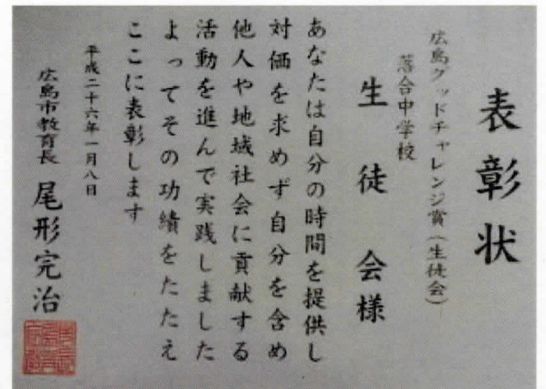 表彰状
広島グッドチャレンジ賞(生徒会)
落合中学校
生徒会様
あなたは自分の時間を提供し
対価を求めず自分を含め
他人や地域社会に貢献する
活動を進んで実践しました
よってその功績をたたえ
ここに表彰します
平成二十六年一月八日
広島市教育長 尾形完治